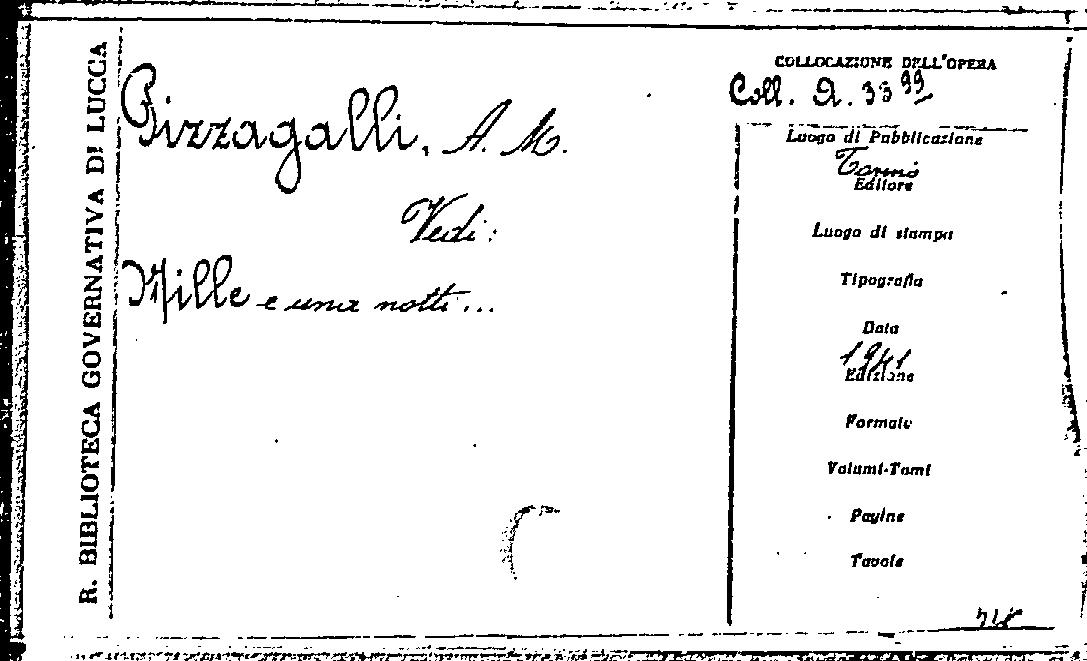 R. BIBLIOTECA GOVERNATIVA DI LUCCA
Pizzagalli, A. M.
Vedi:
Mille e una notti...
COLLOCAZIONE DELL'OPERA
Coll. A. 33 99
Luogo di Pubblicazione
Torino
Editore
Luogo di stampa
Tipografia
Data
1941
Edizione
Formato
Volumi-Tomi
Pagine
Tavole